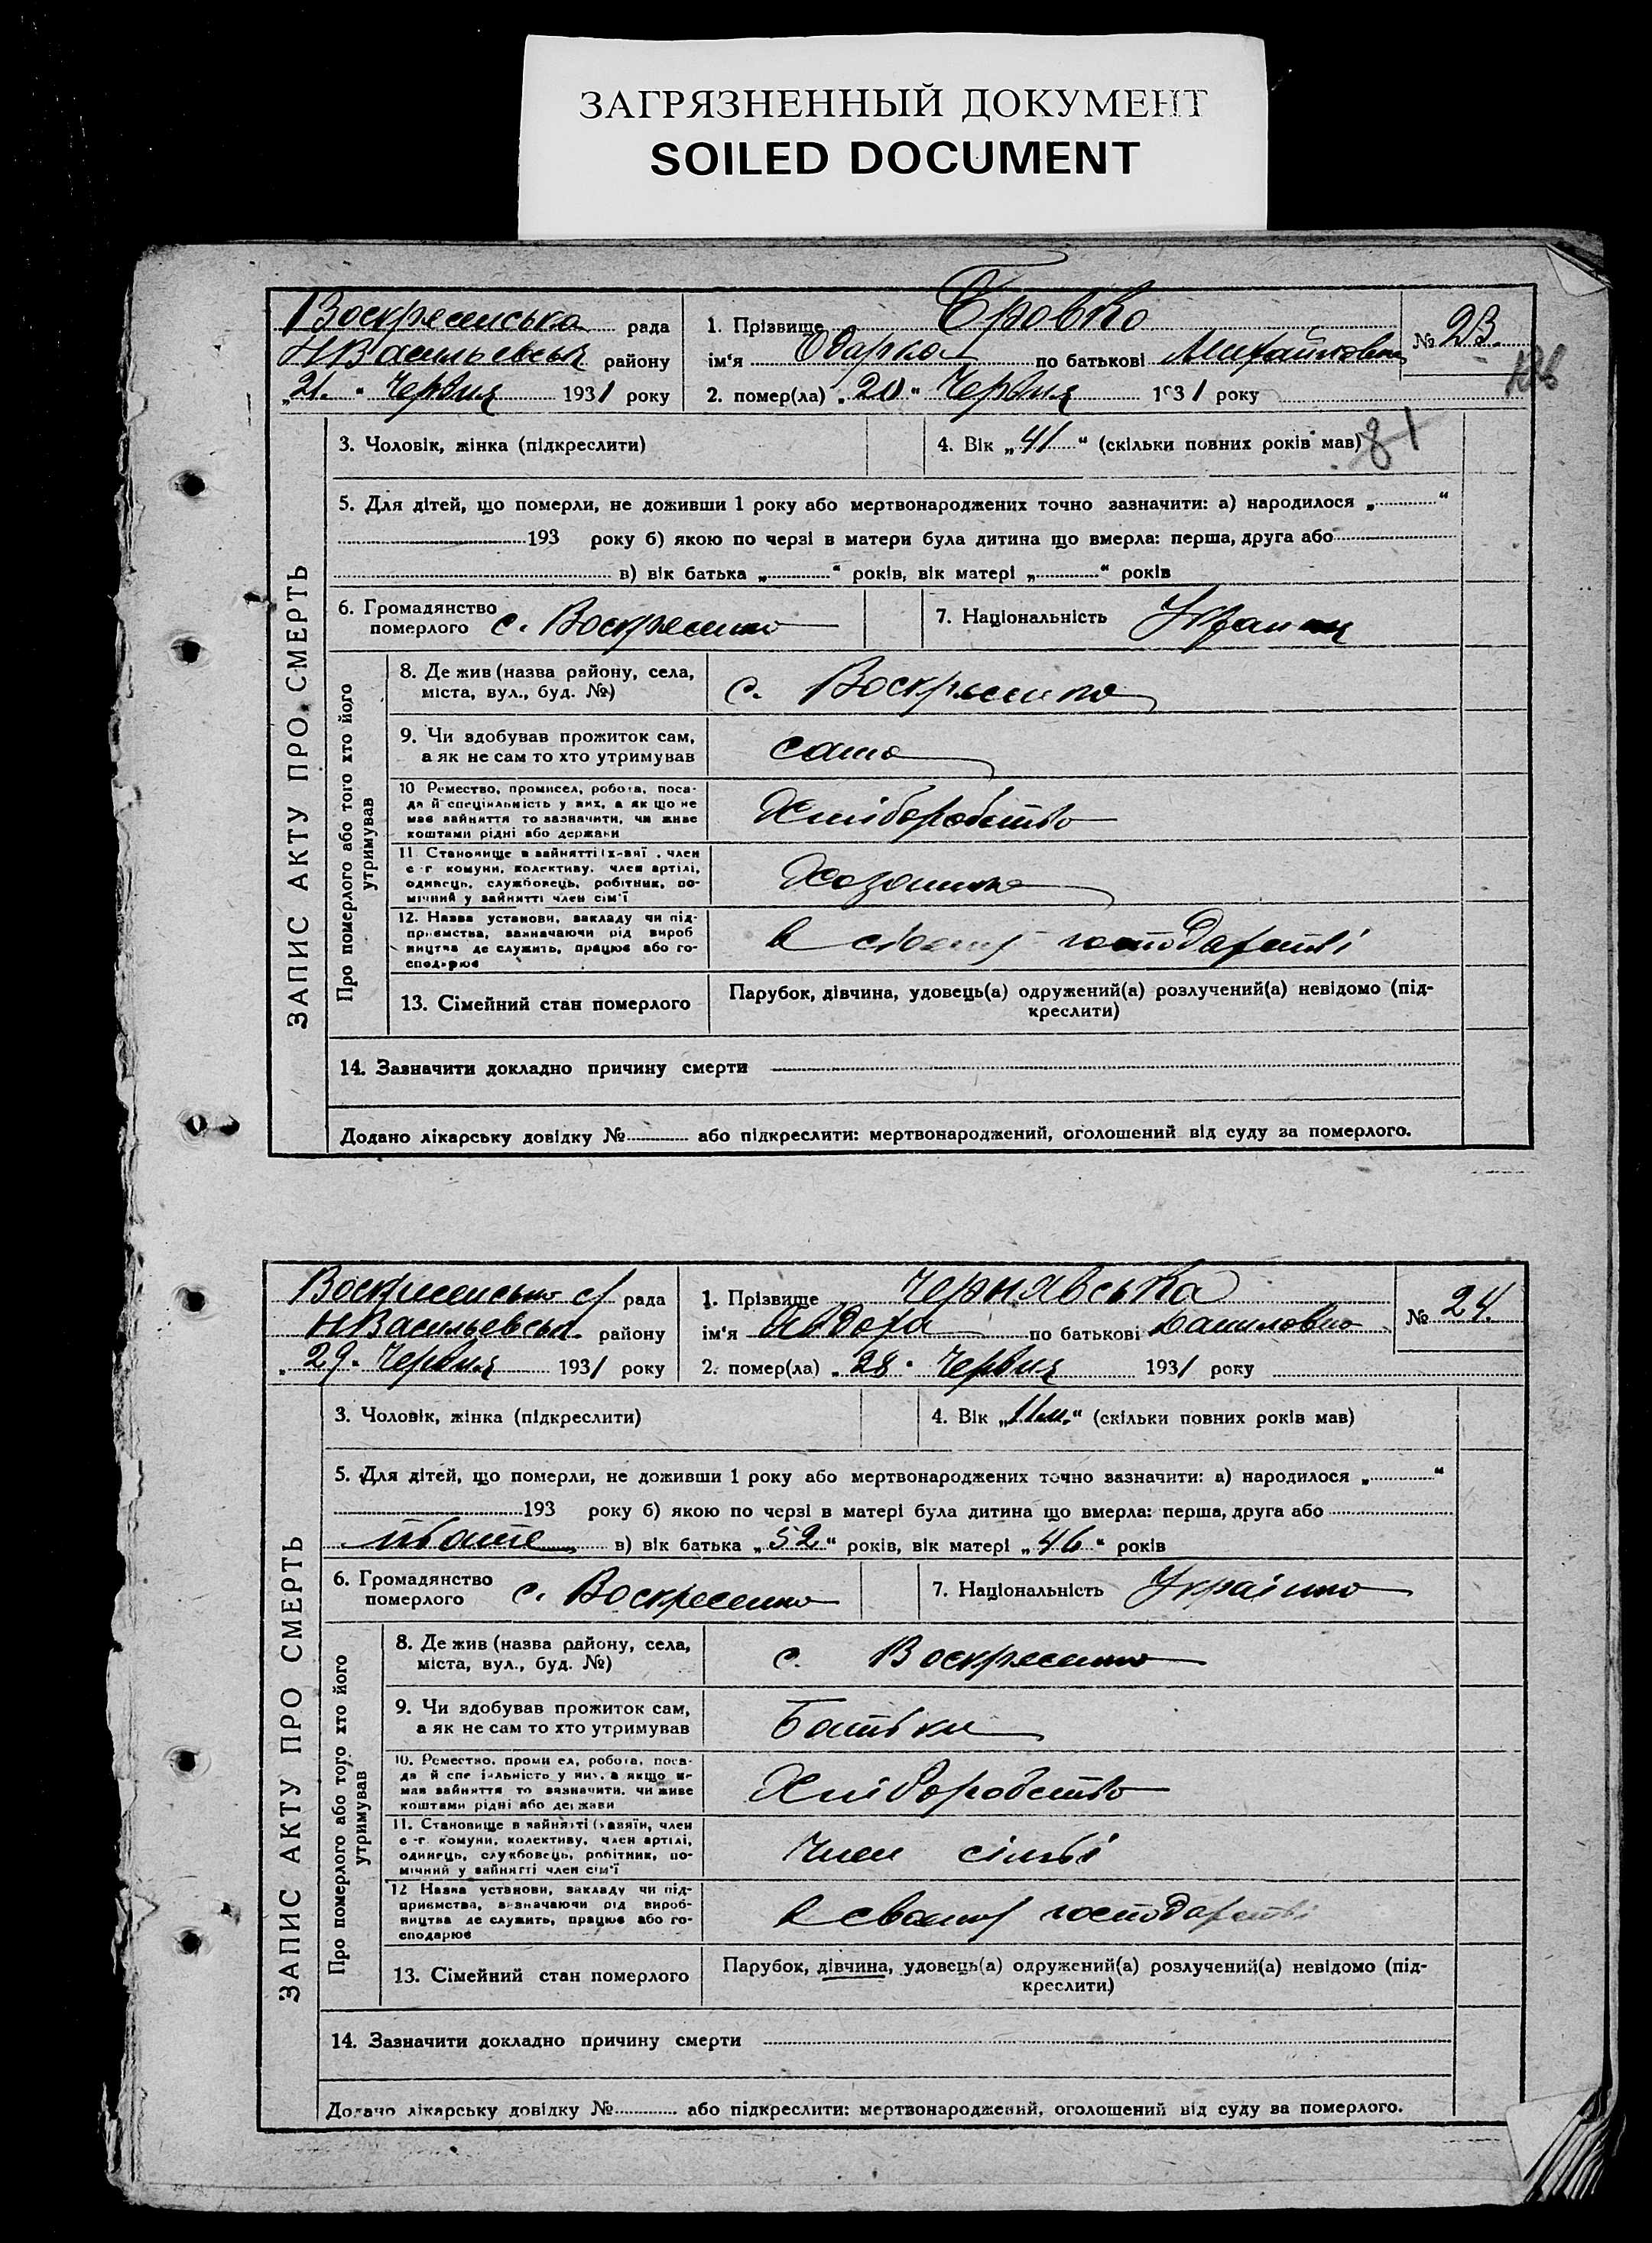 ЗАГРЯЗНЕННЫЙ ДОКУМЕНТ
SOILED DOCUMENT
Воскресенська рада
Н Васильевськ району
„21." Червня 1931 року
1. Прізвище Бровко
ім'я Одарка по батькові Михайловна
2. помер(ла) „20" Червня 1931 року
№ 23.
81
3. Чоловік, жінка (підкреслити)
4. Вік „41" (скільки повних років мав)
5. Для дітей, що померли, не доживши 1 року або мертвонароджених точно зазначити: а) народилося „ "
193 року б) якою по черзі в матери була дитина що вмерла: перша, друга або
в) вік батька „ " років, вік матері „ " років
6. Громадянство померлого с. Воскресенка
7. Національність
ЗАПИС АКТУ ПРО СМЕРТЬ
Про померлого або того хто його утримував
8. Де жив (назва району, села,
міста, вул., буд. №)
с. Воскресенка
9. Чи здобував прожиток сам,
а як не сам то хто утримував
сама
10 Ремество, промисел, робота, поса-
да й спеціяльність у них, а як що не
має зайняття то зазначити, чи живе
коштами рідні або держави
Хліборобство
11 Становище в зайнятті (х-зяї , член
с -г комуни, колективу, член артілі,
одинець, службовець, робітник, по-
мічний у зайнятті член сім'ї
Хозяйка
12. Назва установи, закладу чи під-
приємства, зазначаючи рід вироб
ництва де служить, працює або го-
сподарює
в своему господарстві
13. Сімейний стан померлого
Парубок, дівчина, удовець(а) одружений(а) розлучений(а) невідомо (під-
креслити)
14. Зазначити докладно причину смерти
Додано лікарську довідку № або підкреслити: мертвонароджений, оголошений від суду за померлого.
Воскресенська с/ рада
Н Васильевськ. району
„29. Червня 1931 року
1. Прізвище Чернявська
ім'я Явдоха по батькові Даниловна
2. помер(ла) „28" Червня 1931 року
№ 24.
3. Чоловік, жінка (підкреслити)
4. Вік „11м." (скільки повних років мав)
5. Для дітей, що померли, не доживши 1 року або мертвонароджених точно зазначити: а) народилося „ "
193 року б) якою по черзі в матері була дитина що вмерла: перша, друга або
в) вік батька „52" років, вік матері „46" років
6. Громадянство померлого с. Воскресенка
7. Національність Українка
ЗАПИС АКТУ ПРО СМЕРТЬ
Про померлого або того хто його утримував
8. Де жив (назва району, села,
міста, вул., буд. №)
с. Воскресенка
9. Чи здобував прожиток сам,
а як не сам то хто утримував
Батьки
10. Ремество, проми ел, робота, поса-
да й спе іяльність у них, а якщо не
має зайняття то зазначити, чи живе
коштами рідні або держави
Хліборобство
11. Становище в зайнятті (хазяїн, член
с -г. комуни, колективу, член артілі,
одинець, службовець, робітник, по-
мічний у зайнятті член сім'ї
Член сімьі
12 Назва установи, закладу чи під-
приємства, зазначаючи рід вироб-
ництва де служить, працює або го-
сподарює
в своему господарстві
13. Сімейний стан померлого
Парубок, дівчина, удовець(а) одружений(а) розлучений(а) невідомо (під-
креслити)
14. Зазначити докладно причину смерти
Додано лікарську довідку № або підкреслити: мертвонароджений, оголошений від суду за померлого.